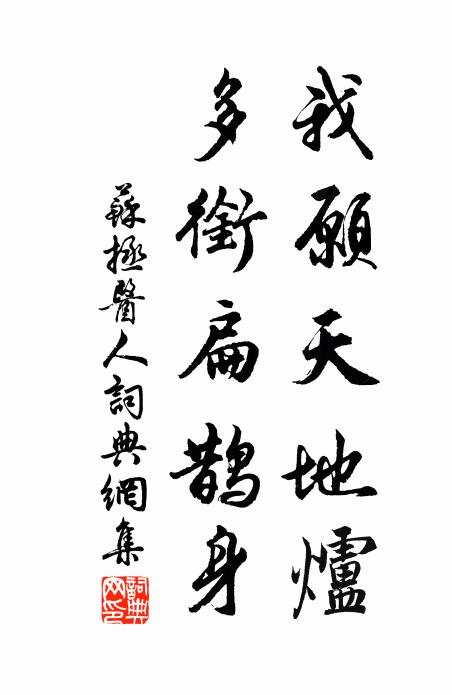 我願天地爐
多銜扁鵲身
蘇拯醫人詞典網集
詞典